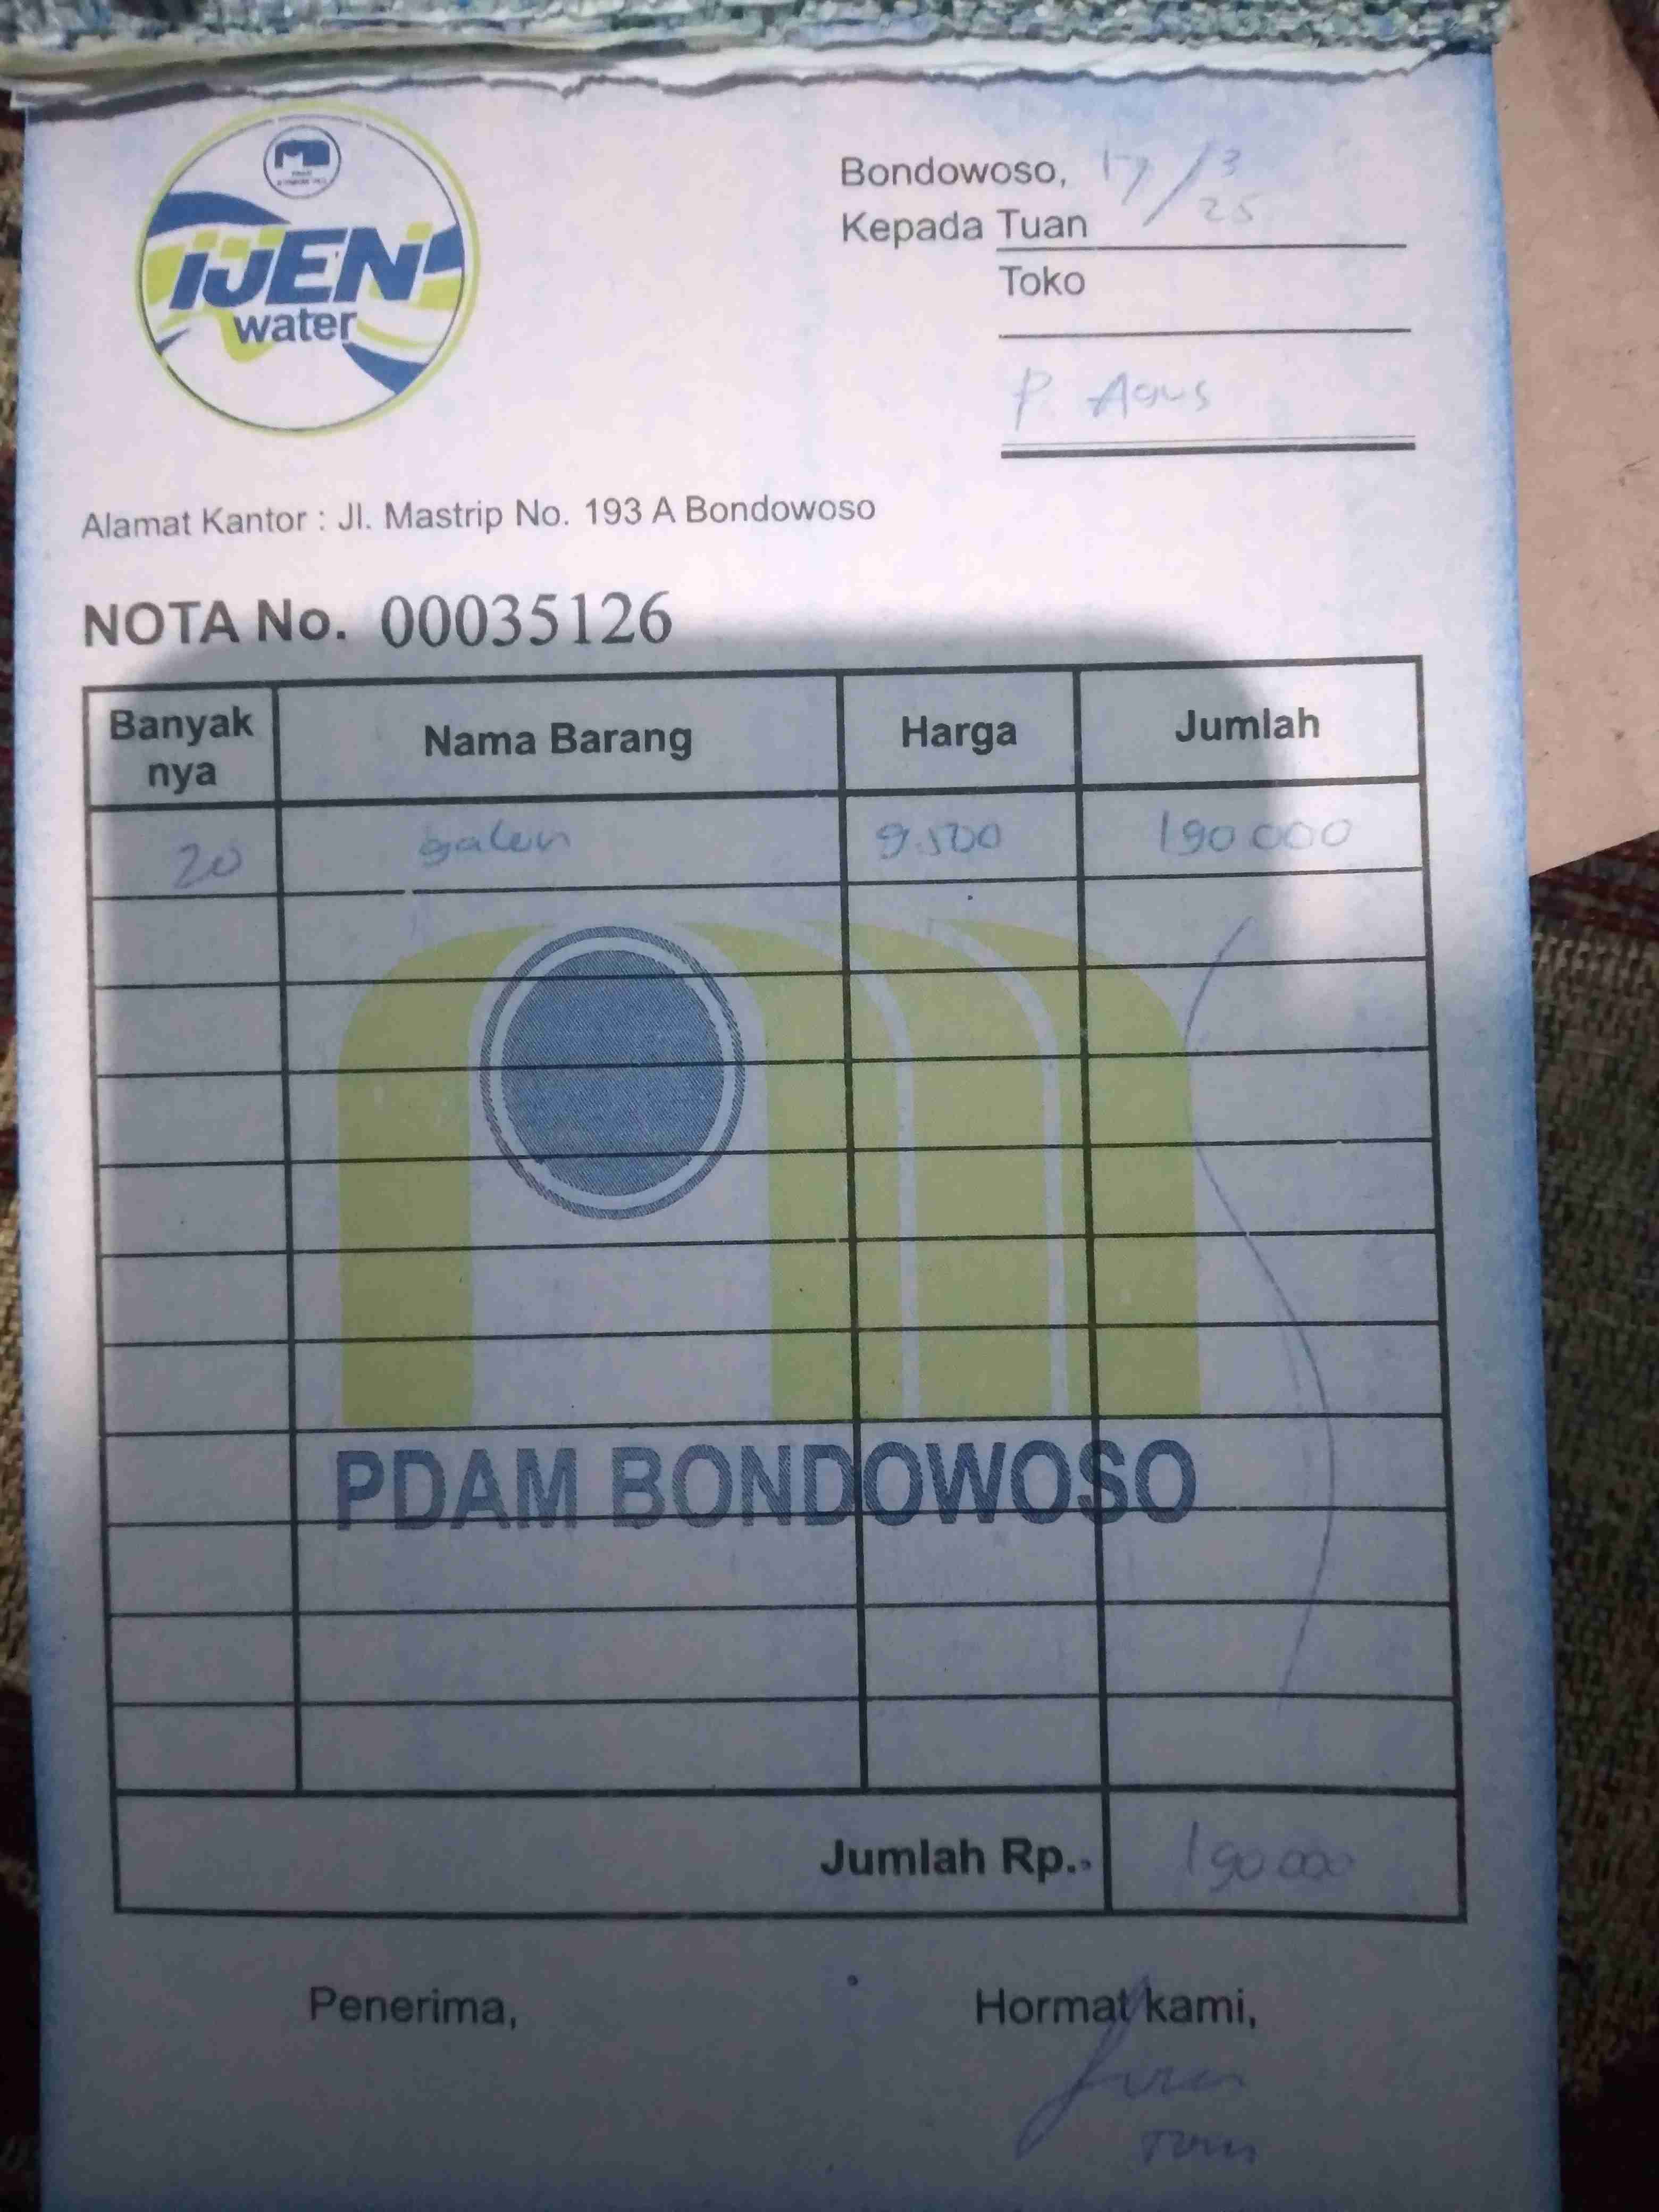 iJEN
water
Bondowoso, 17/3 25
Kepada Tuan
Toko
P. Agus
Alamat Kantor : Jl. Mastrip No. 193 A Bondowoso
NOTA No. 00035126
Banyak nya Nama Barang Harga Jumlah
20 galon 9.500 190 000
PDAM BONDOWOSO
Jumlah Rp. 190 000
Penerima, Hormat kami,